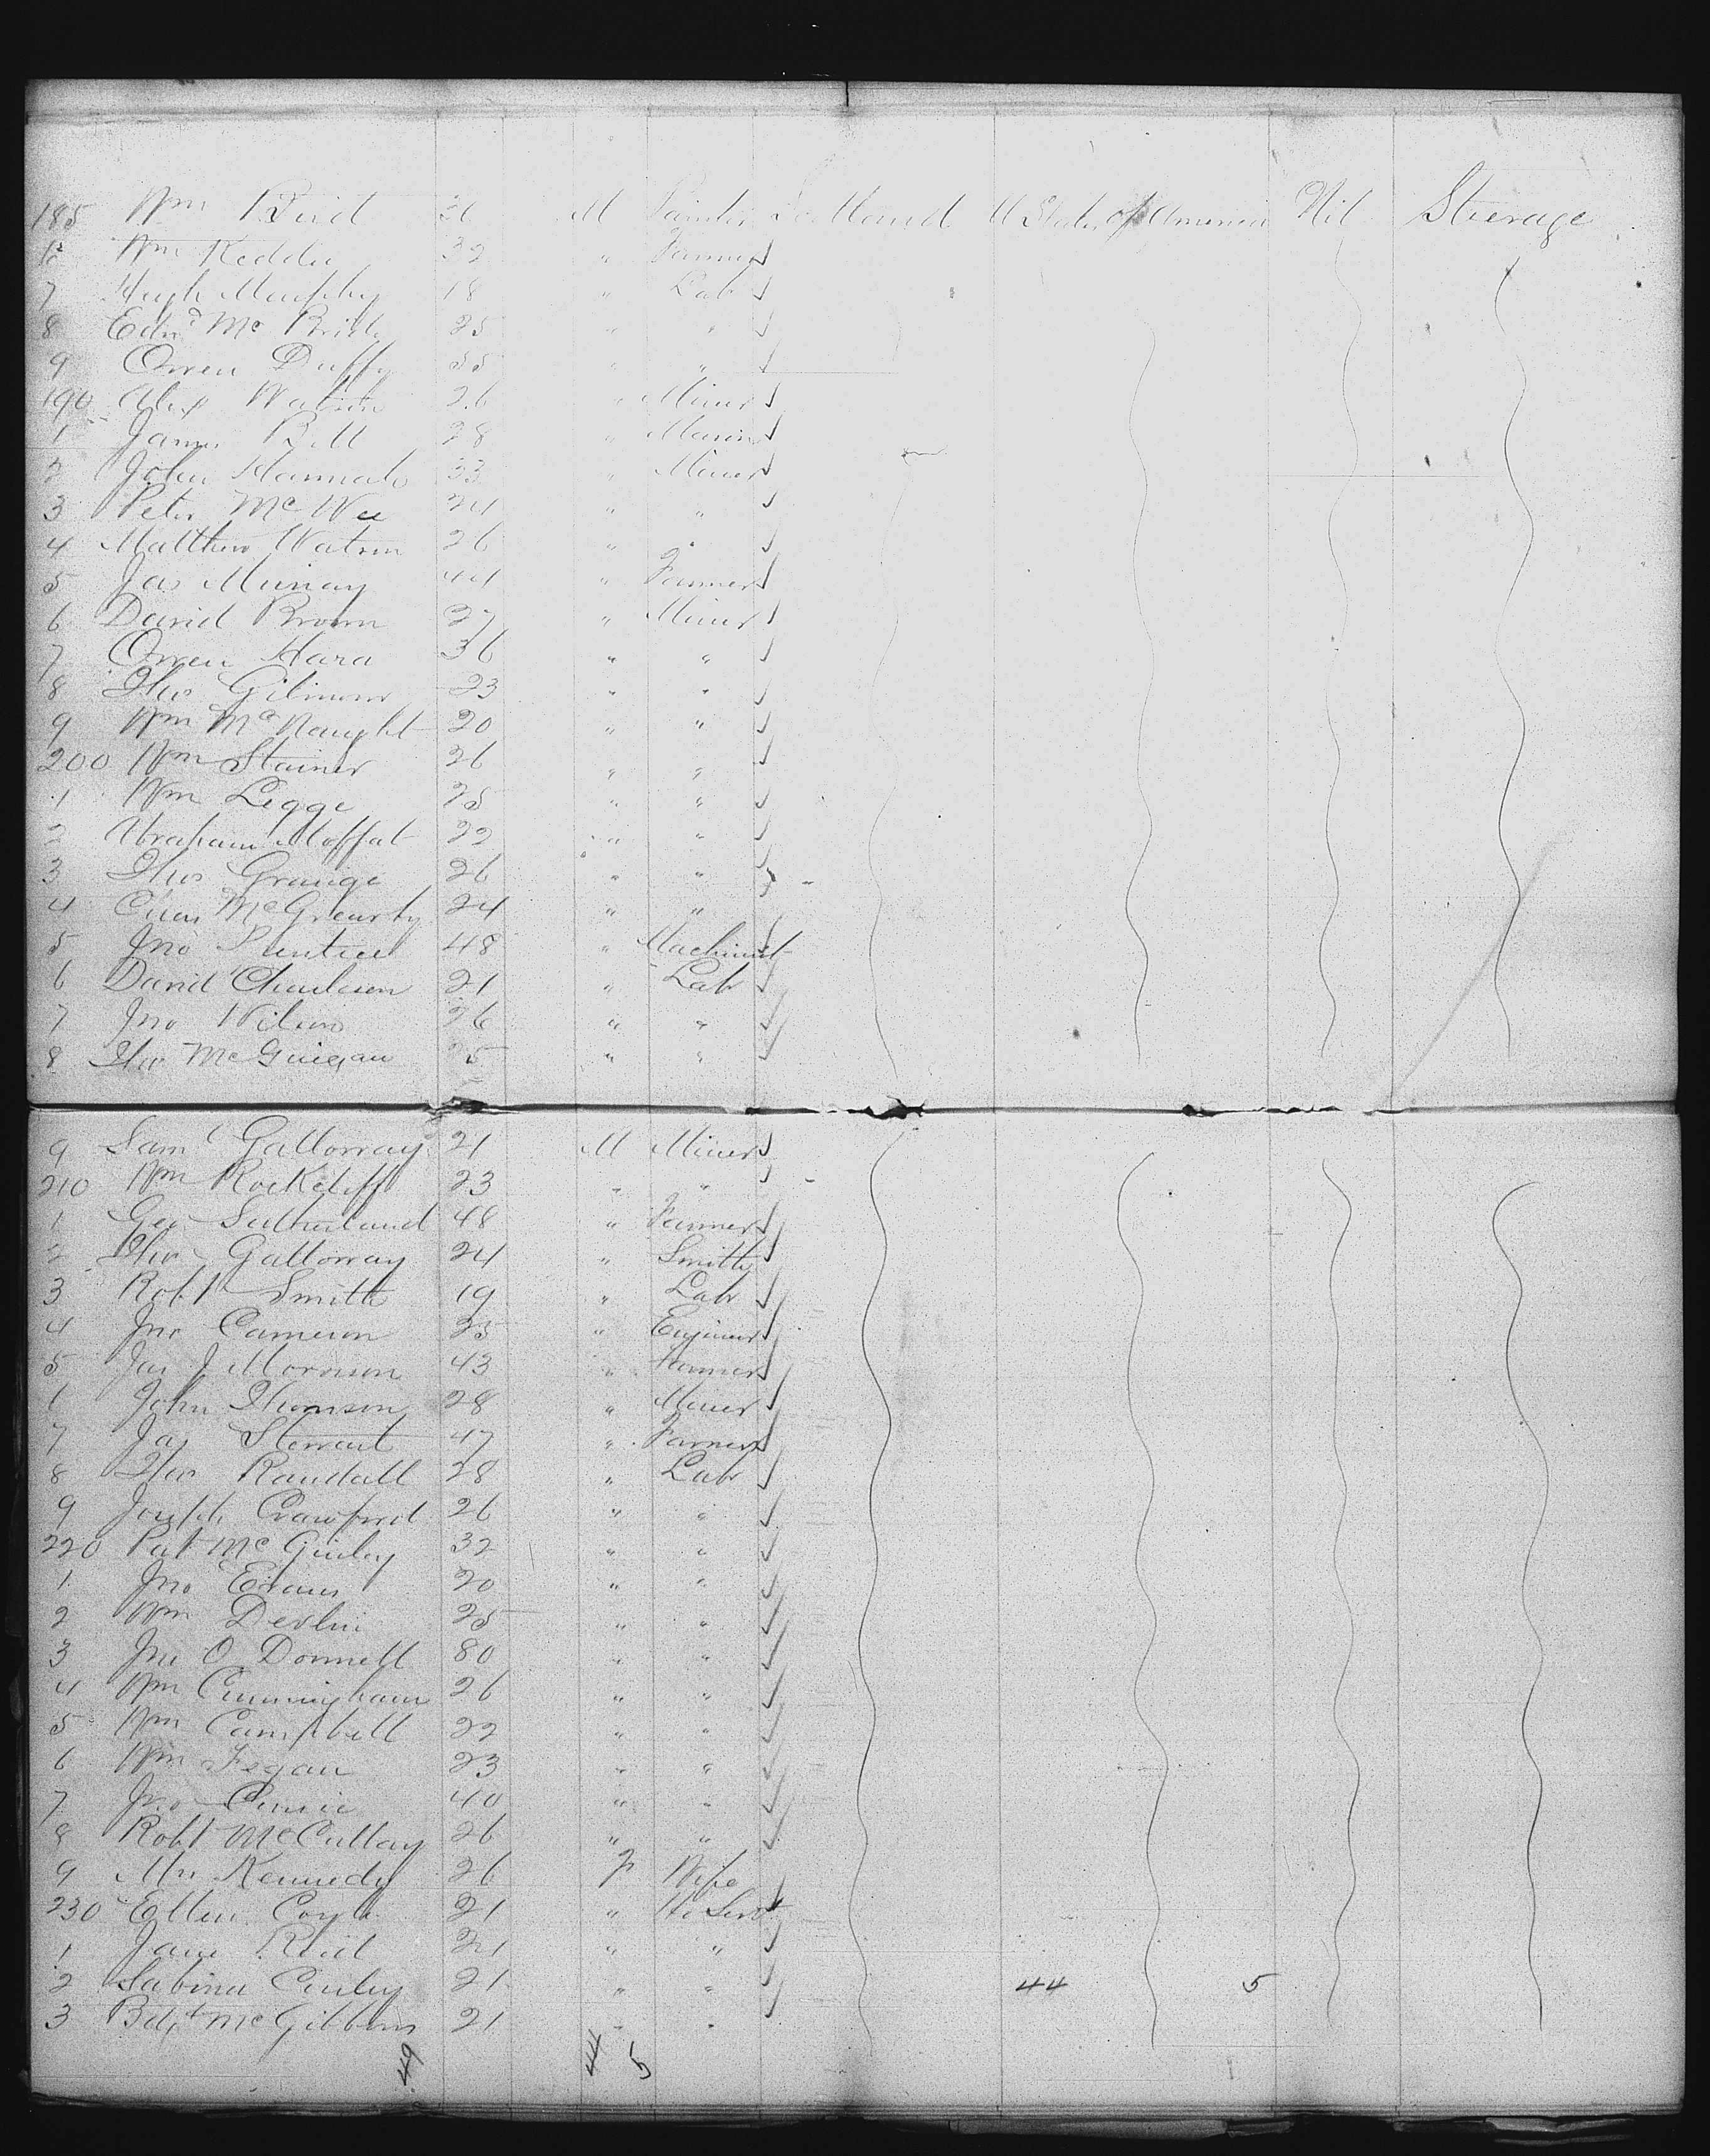 185 Wm Bird M Painter Scotland U States of America Nil Steerage
6 Wm Keddie 32 " Farmer
7 Hugh Murphy 18 " Lab
8 Edwd Mc Bride 25 " "
9 Owen Duffy 55 " "
190 Alex Watson 26 " Miner
1 James Bell 28 " Mason
2 John Hannah 33 " Miner
3 Peter Mc Wee 24 " "
4 Matthew Watson 26 " "
5 Jas Murray 44 " Farmer
6 David Brown 27 " Miner
7 Owen Hara 36 " "
8 Thos Gilmour 23 " "
9 Wm McNaught 20 " "
200 Wm Stainer 26 " "
1 Wm Legge 25 " "
2 Abraham Moffat 22 " "
3 Thos Grange 26 " "
4 Chas McGreurty 24 " "
5 Jno Prentice 48 " Machinist
6 David 21 " Lab
7 Jno Wilson 26 " "
8 Thos McGuigan 25 " "
9 Saml Galloway 21 M Miner
210 Wm Rockcliff 23 " "
1 Geo Sutherland 48 " Farmer
2 Thos Galloway 24 " Smith
3 Robt Smith 19 " Lab
4 Jno Cameron 25 " Engineer
5 Jas J Morrison 43 " Farmer
6 John Thomson 28 " Miner
7 Jas Stewart 47 " Farmer
8 Thos Randall 28 " Lab
9 Joseph Crawford 26 " "
220 Pat McGinley 32 " "
1 Jno Evans 20 " "
2 Wm Devlin 25 " "
3 Jno O Donnell 80 " "
4 Wm Cunningham 26 " "
5 Wm Campbell 22 " "
6 Wm Fegan 23 " "
7 Jno 40 " "
8 Robt McCullay 26 " "
9 Mrs Kennedy 26 F Wife
230 Ellen Coyle 21 " Ho Servt
1 Jane Reid 21 " "
2 Sabina Curley 21 " " 44 5
3 Bdgt McGibbons 21 " "
49 44 5